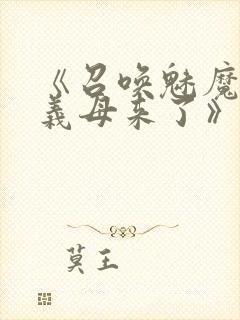 《召唤魅魔
義母来了》
莫王